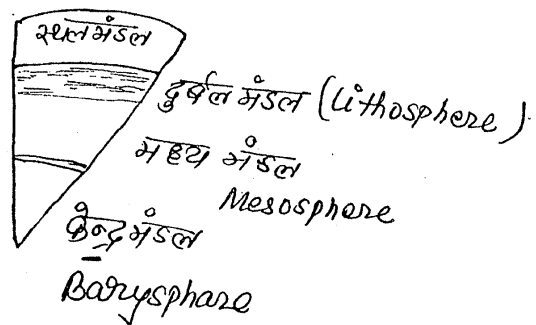 स्थलमंडल
दुर्बल मंडल (Lithosphere)
मध्य मंडल
Mesosphere
केन्द्रमंडल
Barysphare